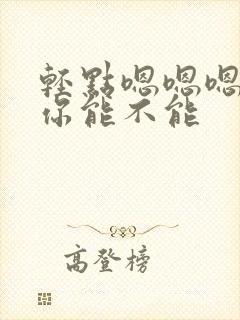 輕點嗯嗯嗯
你能不能
高登榜